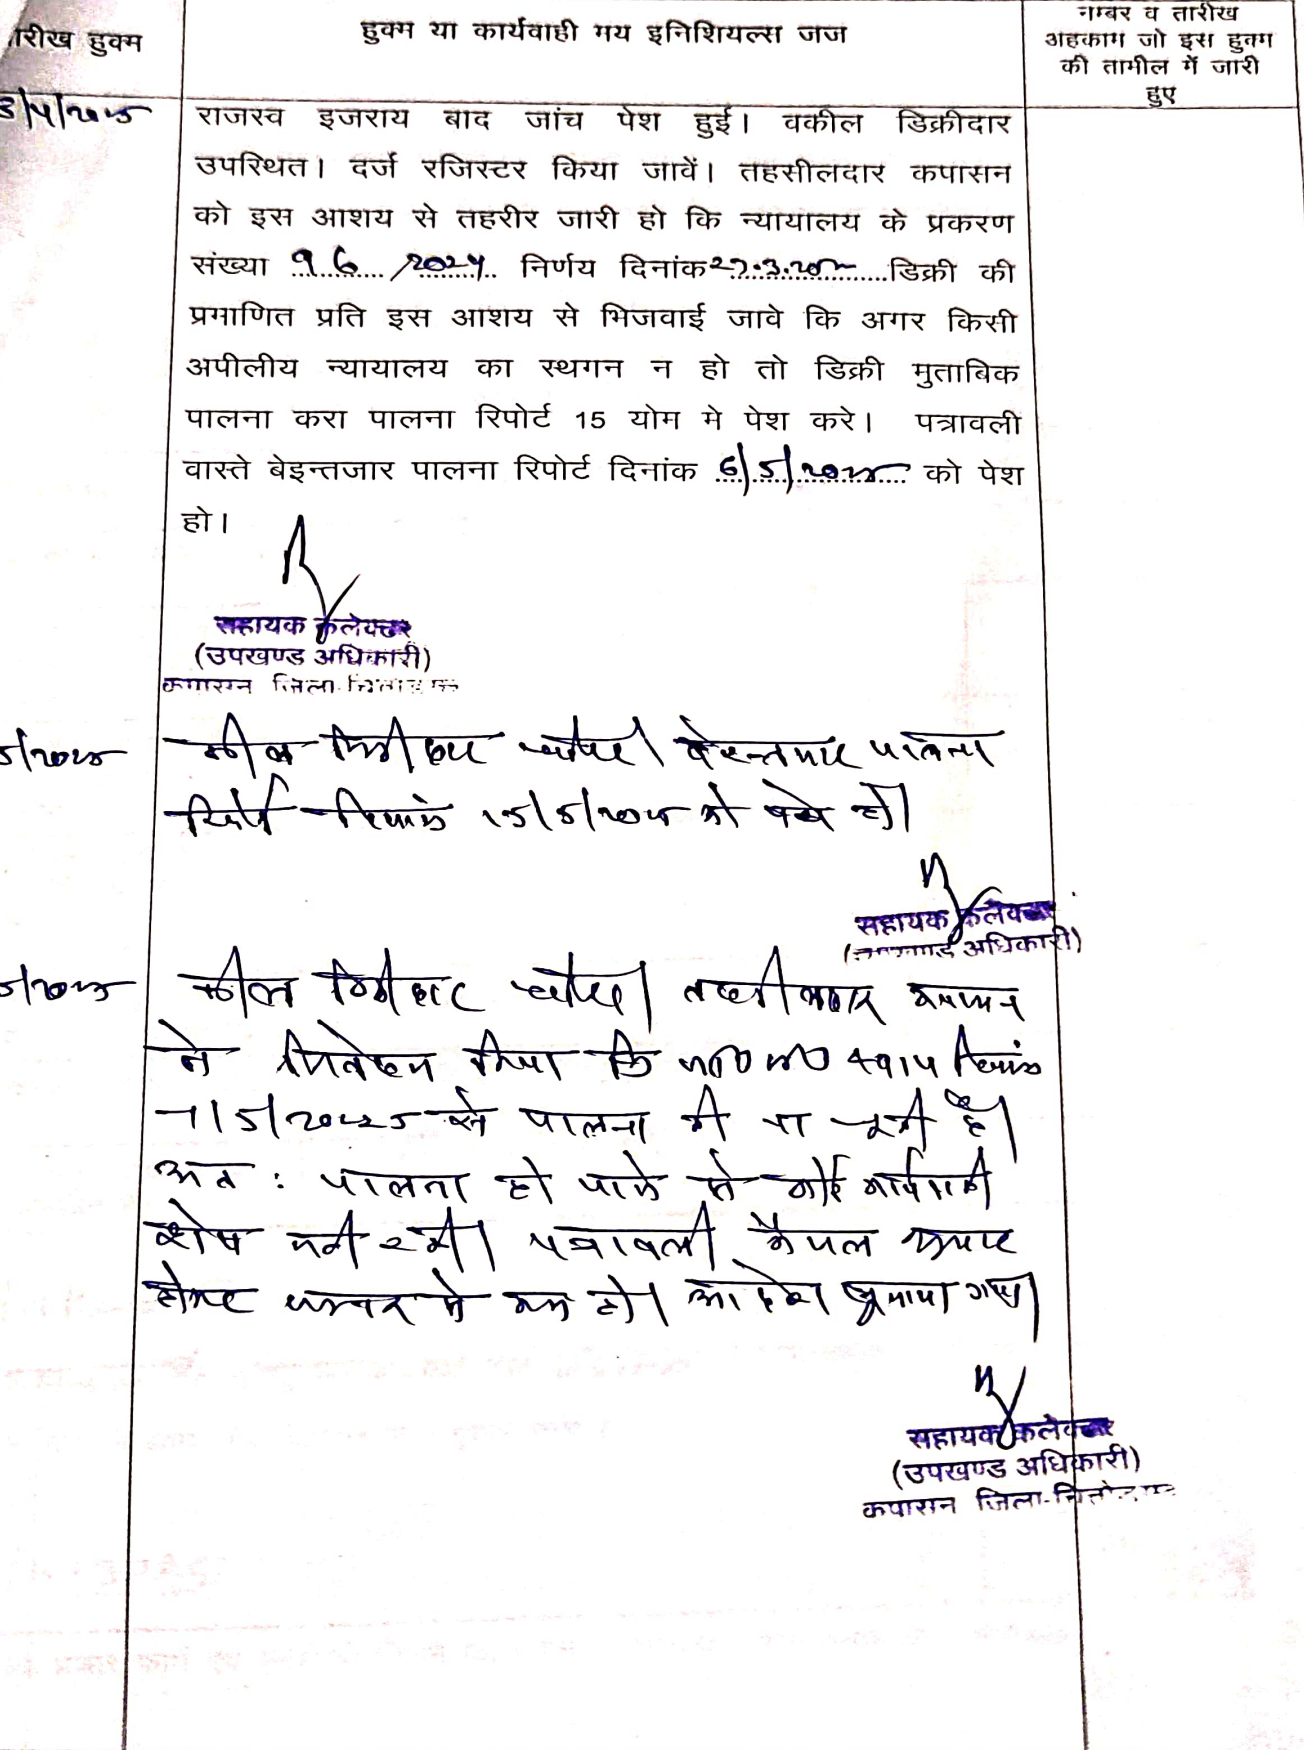 तारीख हुक्म
हुक्म या कार्यवाही मय इनिशियल्स जज
नम्बर व तारीख
अहकाम जो इस हुक्म
की तामील में जारी
हुए
राजस्व इजराय बाद जांच पेश हुई। वकील डिक्रीदार
उपस्थित। दर्ज रजिस्टर किया जावें। तहसीलदार कपासन
को इस आशय से तहरीर जारी हो कि न्यायालय के प्रकरण
संख्या 96/2024 निर्णय दिनांक 27.3.2025 डिक्री की
प्रमाणित प्रति इस आशय से भिजवाई जावे कि अगर किसी
अपीलीय न्यायालय का स्थगन न हो तो डिक्री मुताबिक
पालना करा पालना रिपोर्ट 15 योम मे पेश करे। पत्रावली
वास्ते बेइन्तजार पालना रिपोर्ट दिनांक 6/5/2025 को पेश
हो।
सहायक कलेक्टर
(उपखण्ड अधिकारी)
कपासन जिला-चित्तौड़गढ़
5/2025
वकील डिक्रीदार उपस्थित। बेइन्तजार पालना
रिपोर्ट दिनांक 15/5/2025 को पेश हो।
सहायक कलेक्टर
(उपखण्ड अधिकारी)
5/2025
वकील डिक्रीदार उपस्थित। तहसीलदार कपासन
ने निवेदन किया कि दिनांक
7/5/2025 से पालना की जा चुकी है।
अत: पालना हो जाने से कोई कार्यवाही
शेष नहीं रही। पत्रावली फैसल शुमार
होकर दफ्तर मे जमा हो। आदेश सुनाया गया।
सहायक कलेक्टर
(उपखण्ड अधिकारी)
कपासन जिला-चित्तौड़गढ़